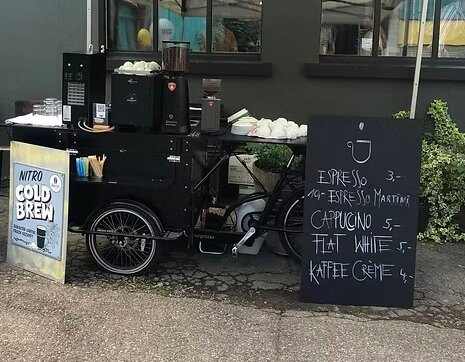 NITRO
COLD
BREW
ESPRESSO 3,-
10,- ESPRESSO MARTINI
CAPPUCINO 5,-
FLAT WHITE 5,-
KAFFEE CRÈME 4,-